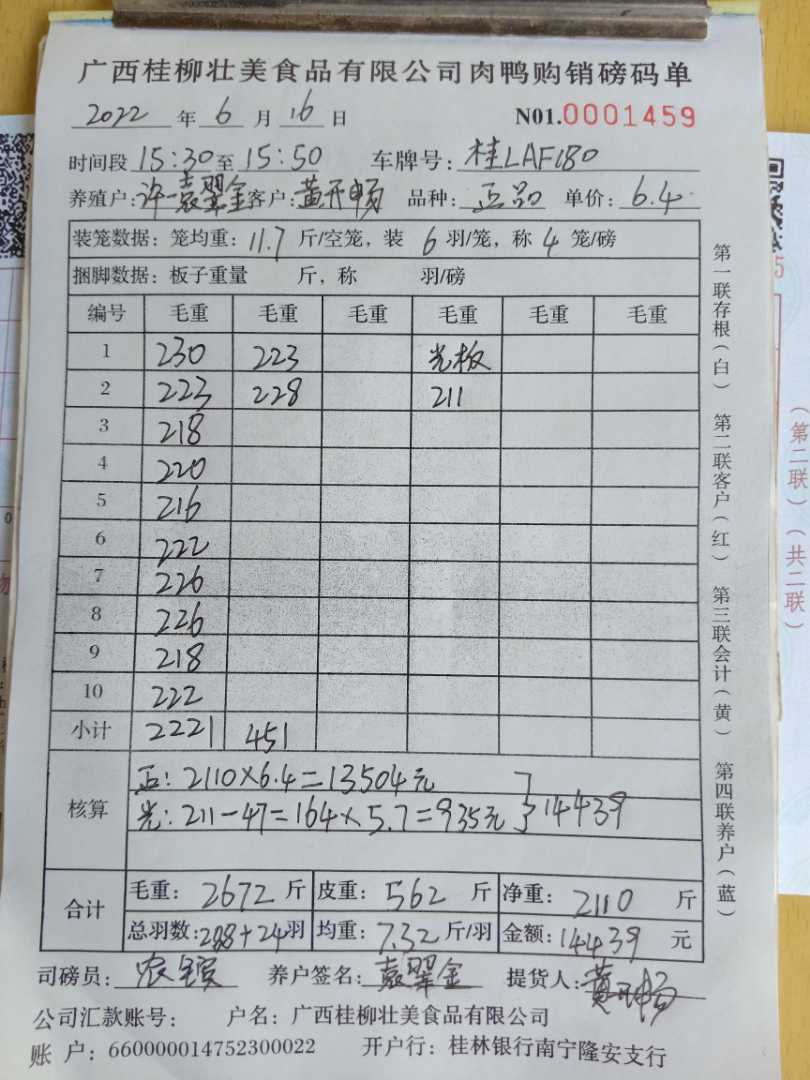 广西桂柳壮美食品有限公司肉鸭购销磅码单
2022 年 6 月 16 日 N01.0001459
时间段 15:30 至 15:50 车牌号: 桂LAF180
养殖户: 许 袁翠金 客户: 黄开畅 品种: 正品 单价: 6.4
装笼数据: 笼均重: 11.7 斤/空笼, 装 6 羽/笼, 称 4 笼/磅
捆脚数据: 板子重量 斤, 称 羽/磅
编号 毛重 毛重 毛重 毛重 毛重 毛重
1 230 223 光板
2 223 228 211
3 218
4 220
5 216
6 222
7 226
8 226
9 218
10 222
小计 2221 451
核算
正: 2110×6.4=13504元
光: 211-47=164×5.7=935元 } 14439
合计
毛重: 2672 斤 皮重: 562 斤 净重: 2110 斤
总羽数: 288+24羽 均重: 7.32 斤/羽 金额: 14439 元
司磅员: 养户签名: 袁翠金 提货人: 黄开畅
公司汇款账号: 户名: 广西桂柳壮美食品有限公司
账 户: 660000014752300022 开户行: 桂林银行南宁隆安支行
第一联存根(白) 第二联客户(红) 第三联会计(黄) 第四联养户(蓝)
(第二联)(共二联)